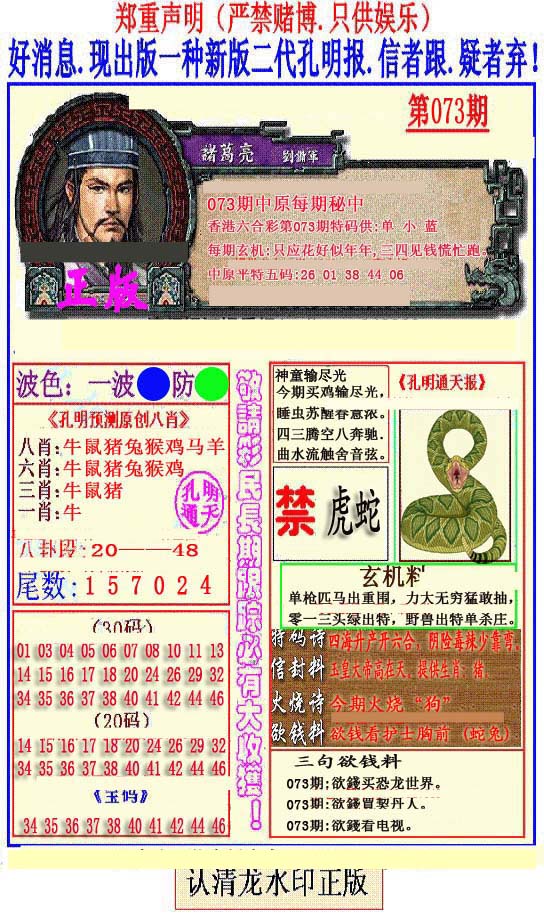 郑重声明（严禁赌博.只供娱乐）
好消息.现出版一种新版二代孔明报.信者跟.疑者弃!
第073期
諸葛亮 劉備軍
073期中原每期秘中
香港六合彩第073期特码供:单 小 蓝
每期玄机:只应花好似年年,三四见钱慌忙跑。
中原半特五码:26 01 38 44 06
正版
波色：一波 防
《孔明预测原创八肖》
八肖:牛鼠猪兔猴鸡马羊
六肖:牛鼠猪兔猴鸡
三肖:牛鼠猪
一肖:牛
孔明
通天
八卦段:20——48
尾数:157024
(30码)
01 03 04 05 06 07 08 10 11 13
14 15 16 17 18 20 24 26 29 32
34 35 36 37 38 40 41 42 44 46
(20码)
14 15 16 17 18 20 24 26 29 32
34 35 36 37 38 40 41 42 44 46
34 35 36 37 38 40 41 42 44 46
敬請彩民長期跟踪必有大收獲！
神童输尽光
今期买鸡输尽光，
睡虫苏醒春意浓。
四三腾空八奔驰.
曲水流触舍音弦。
《孔明通天报》
禁 虎蛇
玄机料
单枪匹马出重围，力大无穷猛敢抽，
零一三头绿出特，野兽出特单杀庄。
特码诗 四海升产开六合，阴险毒辣少靠弯，
信封料 玉皇大帝高在天。提供生肖：猪，
火烧诗 今期火烧“狗”
欲钱料 欲钱看护士胸前（蛇兔）
三句欲钱料
073期;欲錢买恐龙世界。
073期;欲錢買契丹人。
073期;欲錢看电视。
认清龙水印正版